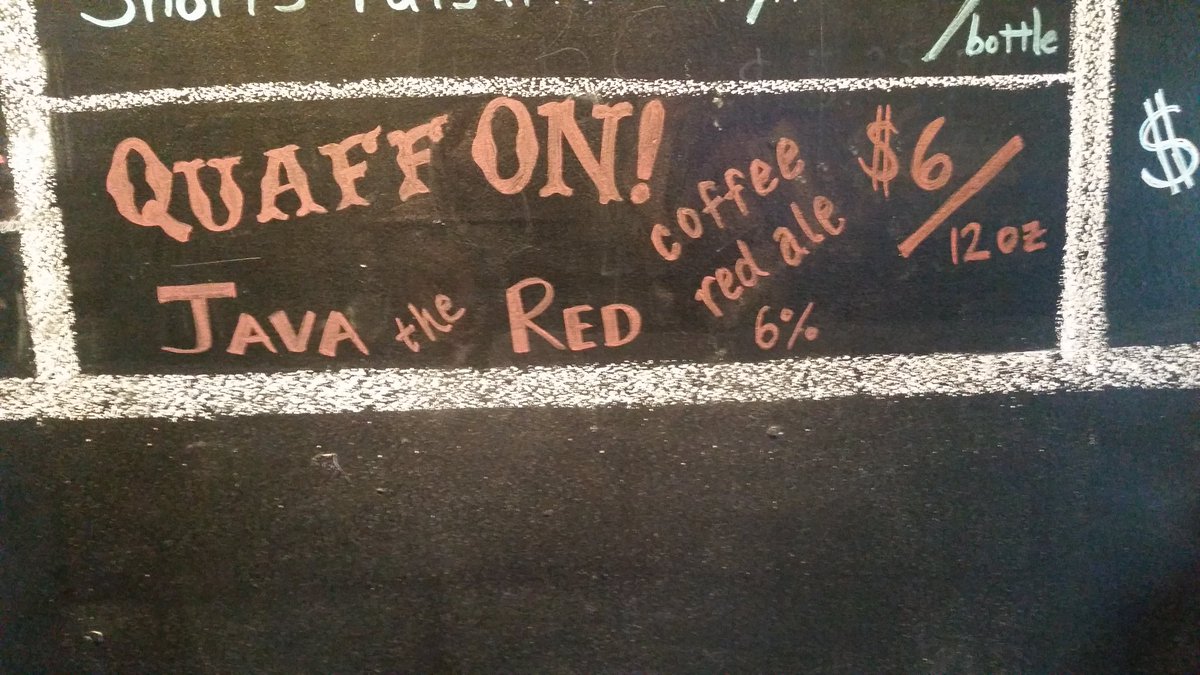 /bottle
QUAFF ON!
JAVA the RED
coffee
red ale
6%
$6/12oz
$